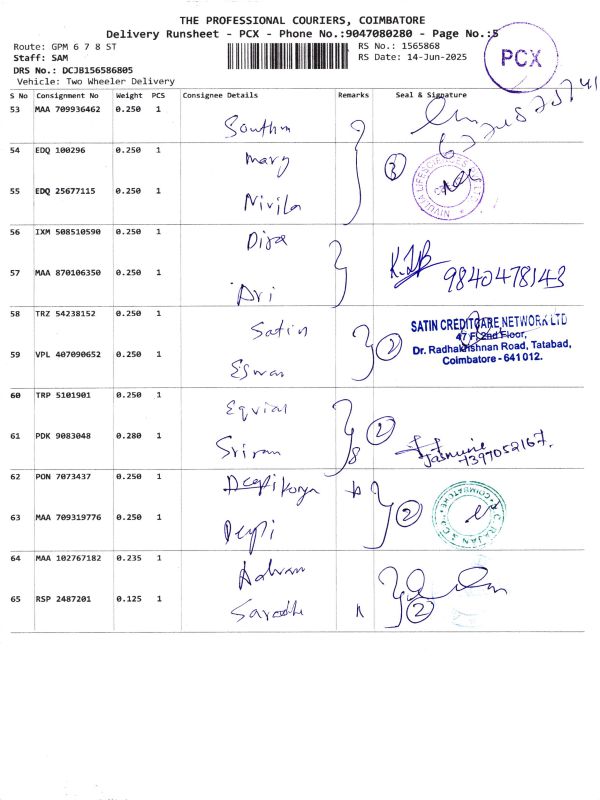 THE PROFESSIONAL COURIERS, COIMBATORE
Delivery Runsheet - PCX - Phone No.:9047080280 - Page No.:5
Route: GPM 6 7 8 ST
RS No.: 1565868
Staff: SAM
RS Date: 14-Jun-2025
DRS No.: DCJB156586805
Vehicle: Two Wheeler Delivery
PCX
S No Consignment No Weight PCS Consignee Details Remarks Seal & Signature
53 MAA 709936462 0.250 1 Southm
54 EDQ 100296 0.250 1 Mary
3
55 EDQ 25677115 0.250 1 Nivila
56 IXM 508510590 0.250 1 Diya
57 MAA 870106350 0.250 1 Dri
9840478143
58 TRZ 54238152 0.250 1 Satin
2
SATIN CREDITCARE NETWORK LTD
47 F, 2nd Floor,
Dr. Radhakrishnan Road, Tatabad,
Coimbatore - 641 012.
59 VPL 407090652 0.250 1 Eswar
60 TRP 5101901 0.250 1
2
61 PDK 9083048 0.280 1 Sriram
Jasmine
7397052167.
62 PON 7073437 0.250 1
2
63 MAA 709319776 0.250 1
64 MAA 102767182 0.235 1
65 RSP 2487201 0.125 1
2